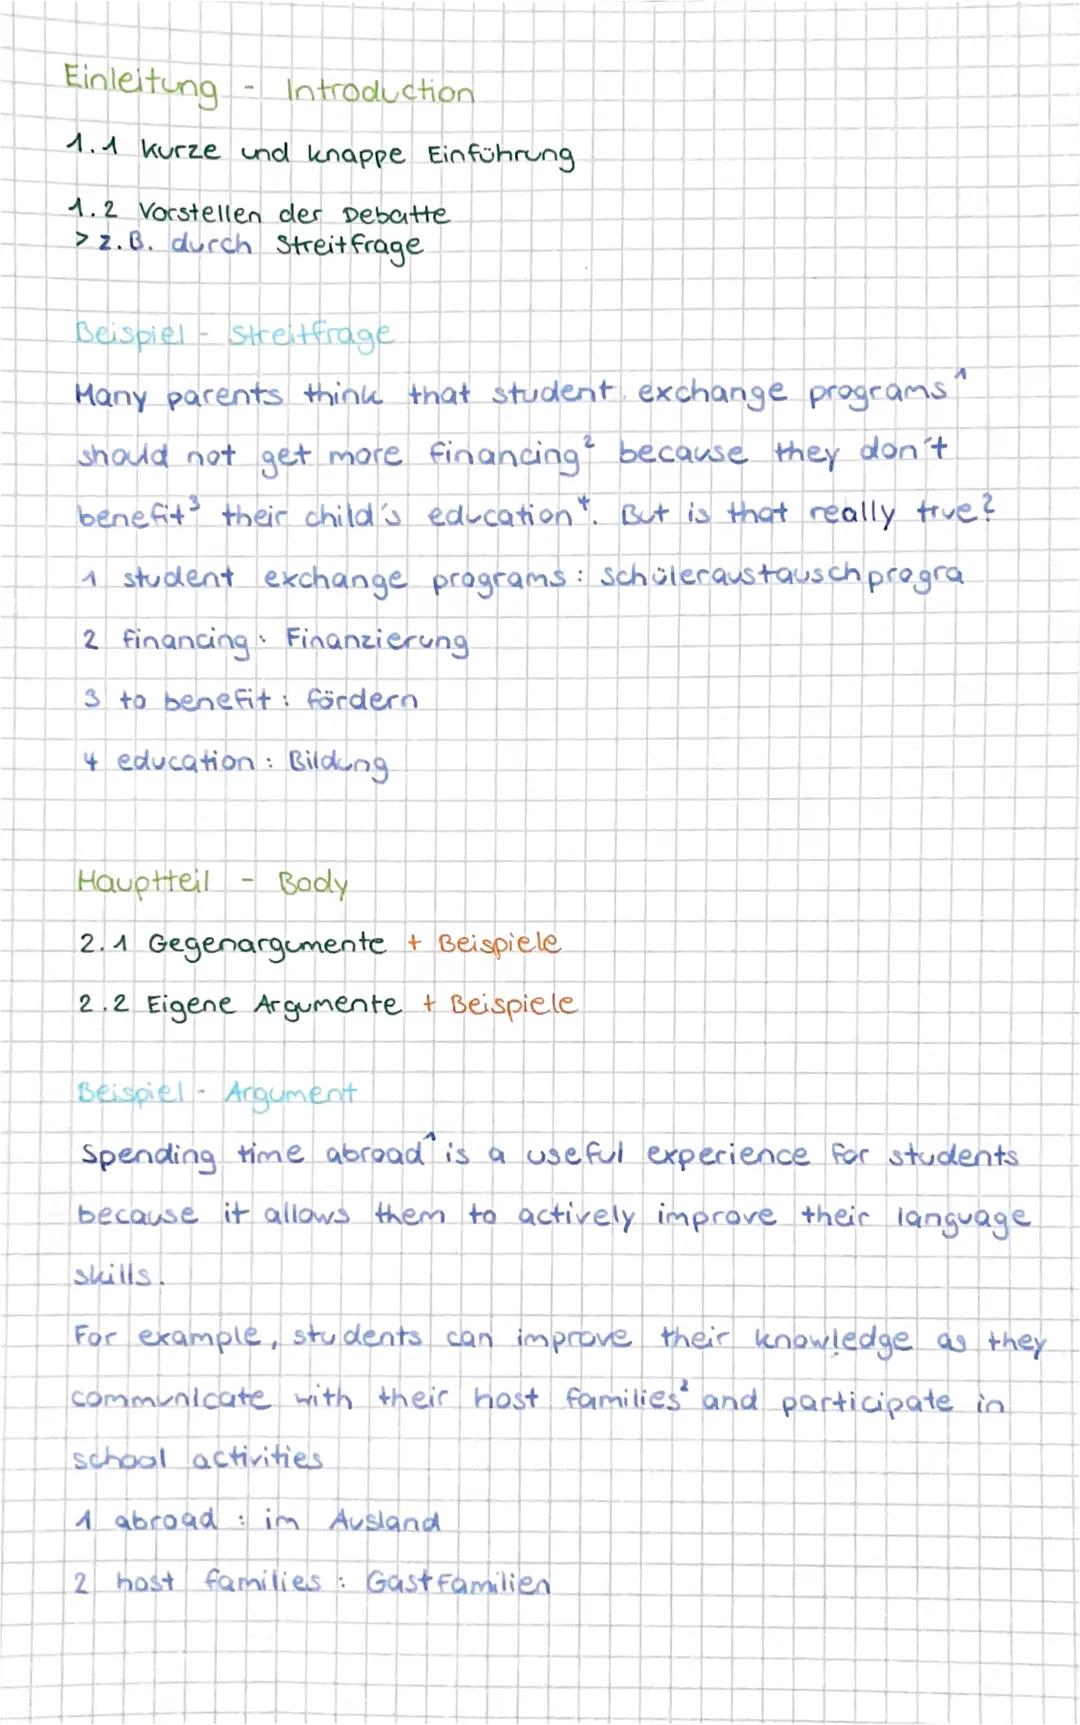 Einleitung - Introduction
1.1 kurze und knappe Einführung
1.2 Vorstellen der Debatte
> z.B. durch Streitfrage
Beispiel - Streitfrage
Many parents think that student exchange programs¹
should not get more financing² because they don't
benefit³ their child's education⁴. But is that really true?
1 student exchange programs: schüleraustauschprogra
2 financing: Finanzierung
3 to benefit: fördern
4 education: Bildung
Hauptteil - Body
2.1 Gegenargumente + Beispiele
2.2 Eigene Argumente + Beispiele
Beispiel - Argument
Spending time abroad¹ is a useful experience for students
because it allows them to actively improve their language
skills.
For example, students can improve their knowledge as they
communicate with their host families² and participate in
school activities
1 abroad: im Ausland
2 host families: Gastfamilien